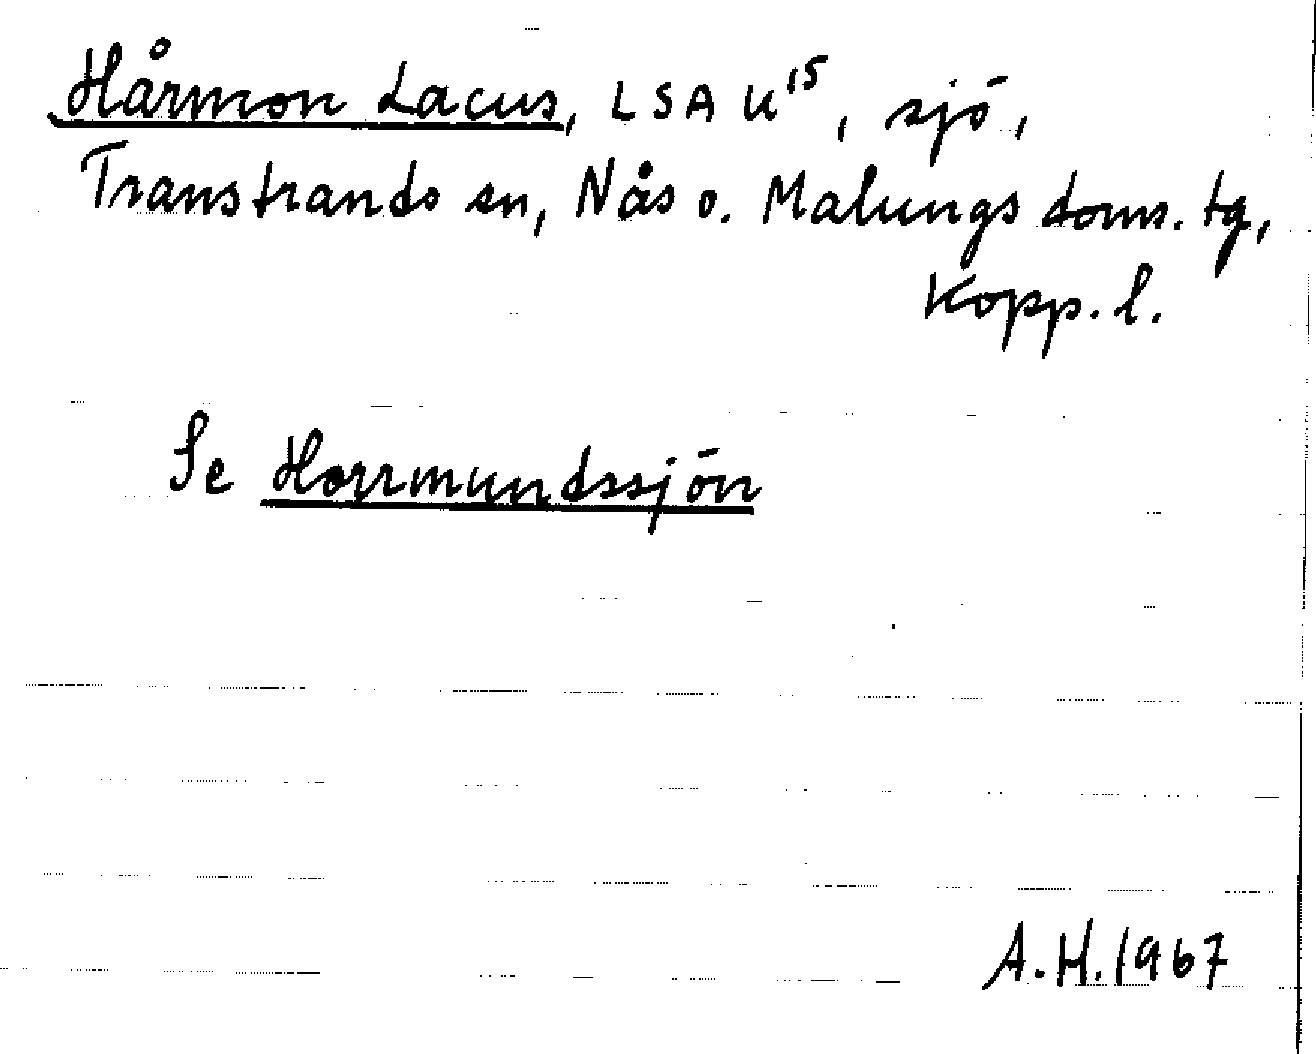 Hårmon Lacus, LSA U¹⁵, sjö,
Transtrands sn, Nås o. Malungs doms. tg,
Kopp. l.
Se Horrmundssjön
A.H. 1967